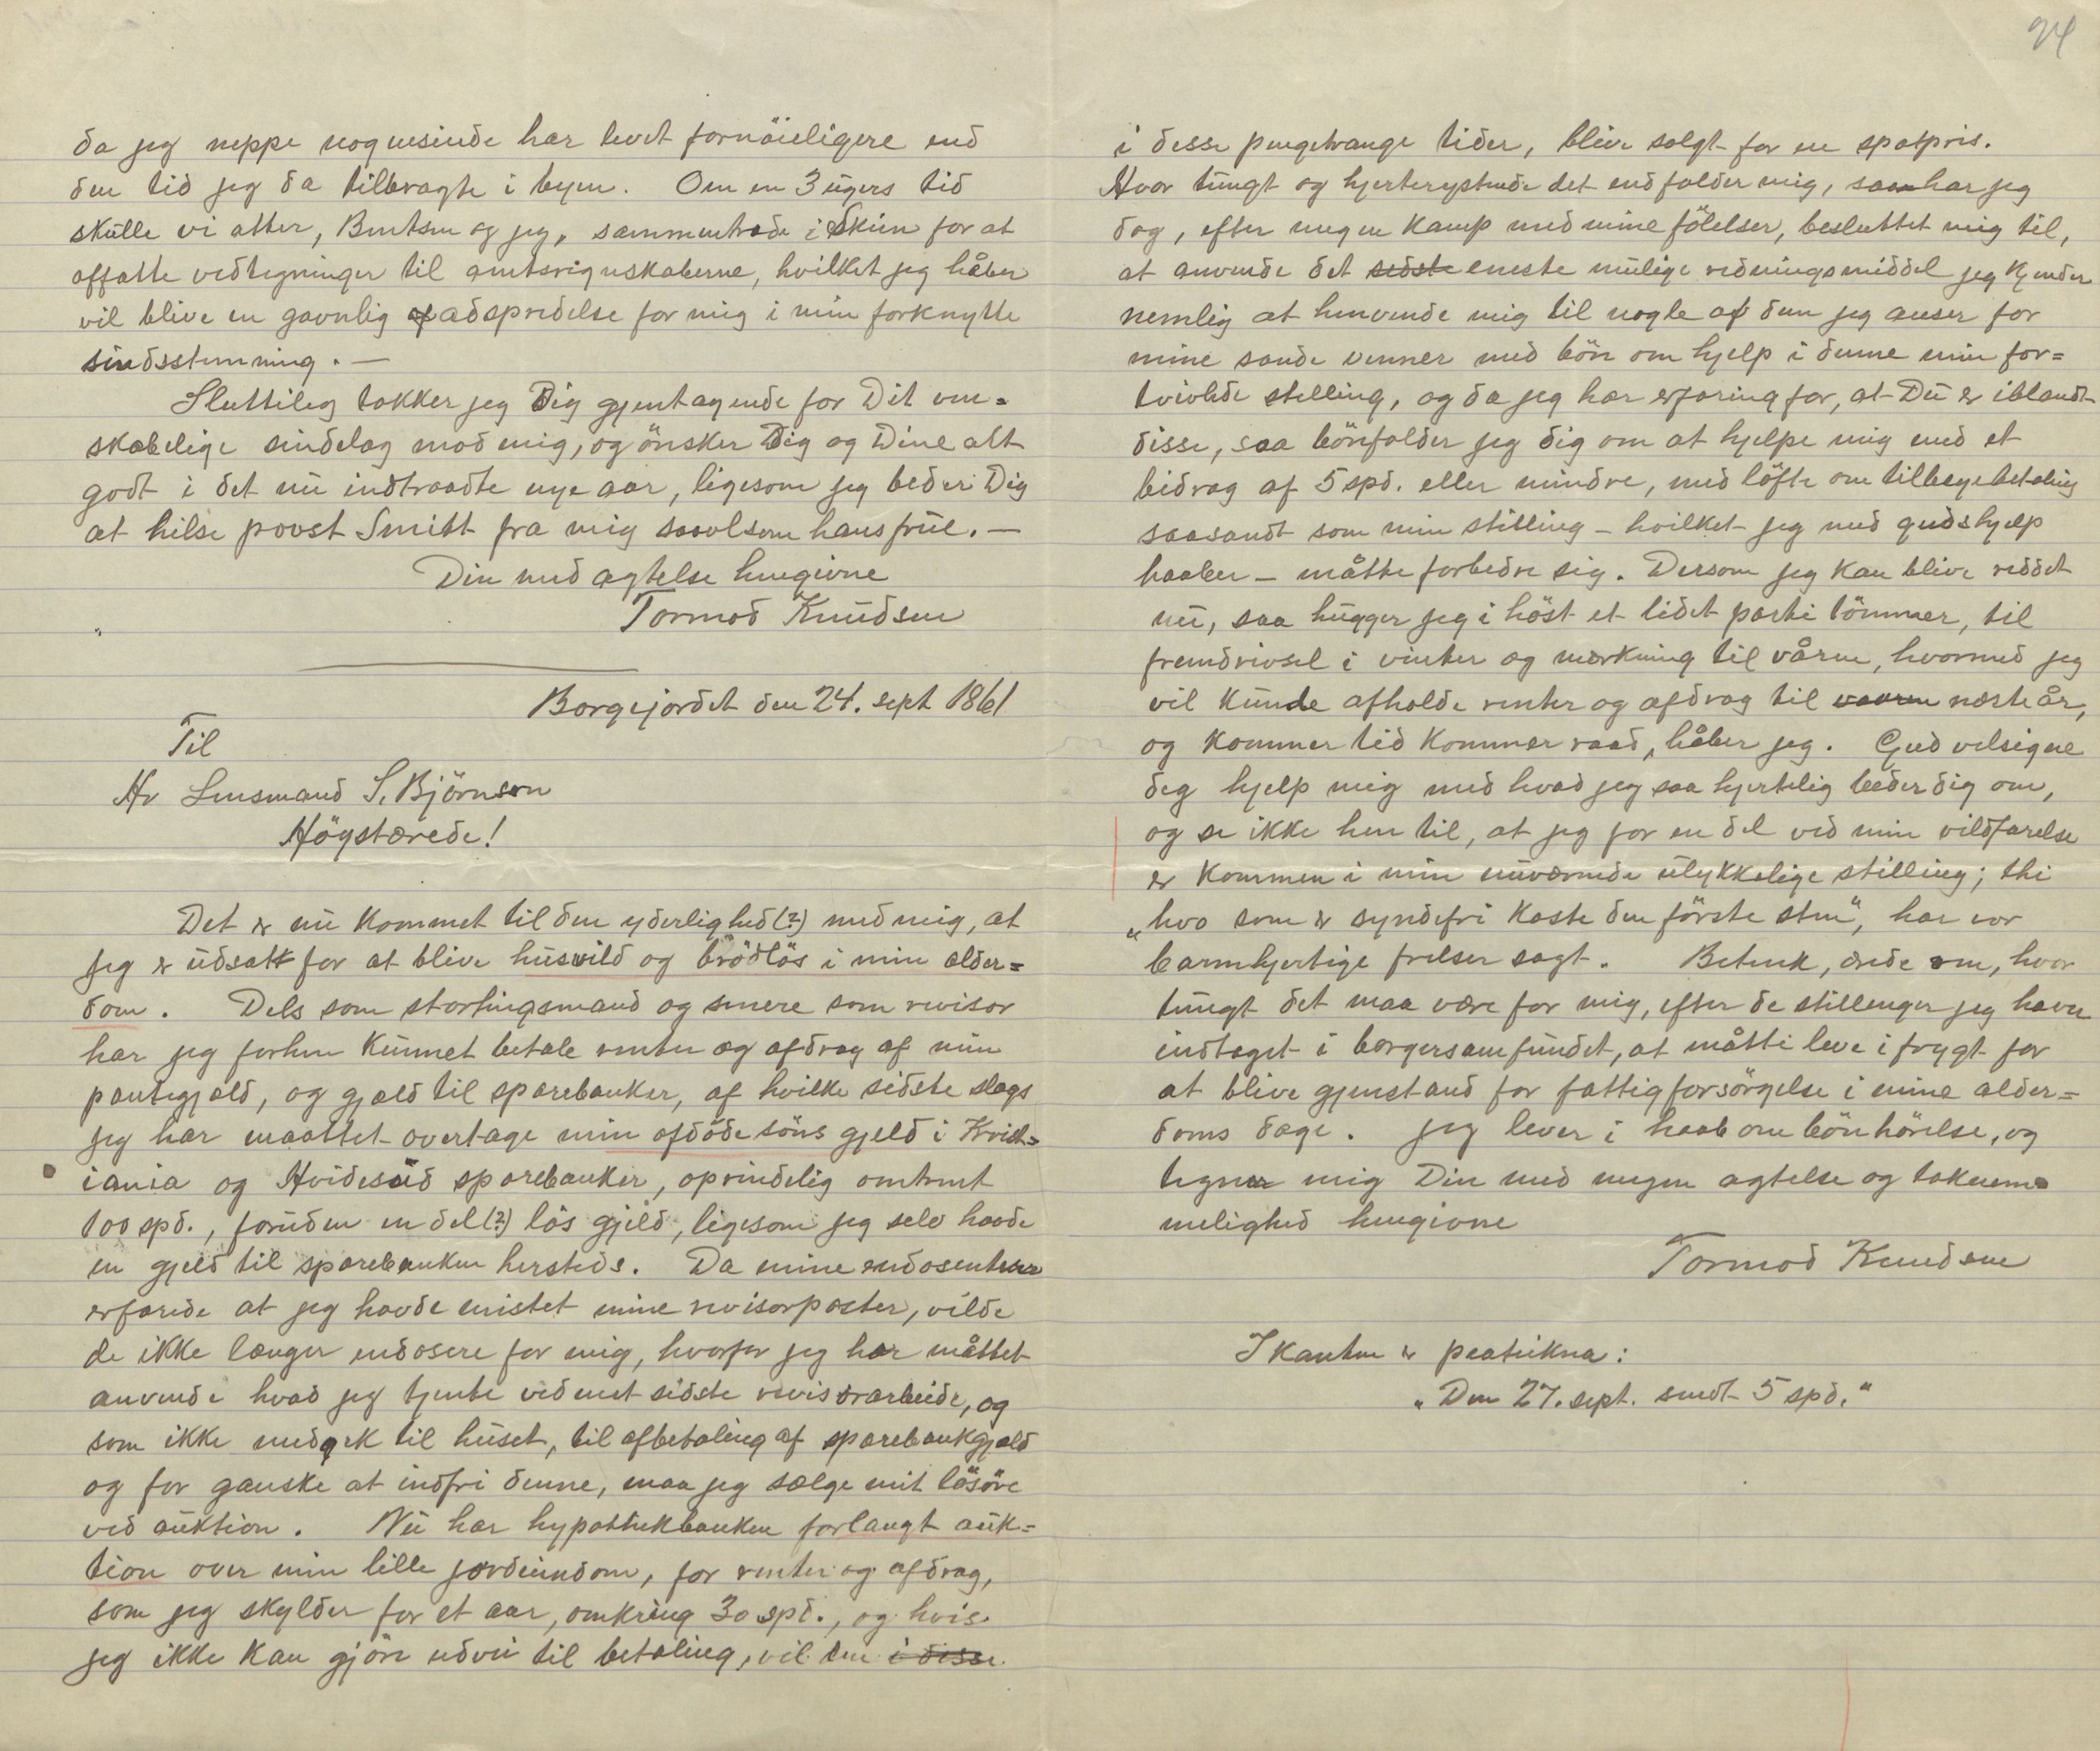 24
da jeg neppe nogensinde har levet fornöieligere end
den tid jeg da tilbragte i byen. Om en 3 ugers tid
skulle vi atter, Berntsen og jeg, sammentræde i Skien for at
affatte vedtegninger til amtsregnskaberne, hvilket jeg håber
vil blive en gavnlig adspredelse for mig i min forknytte
sindsstemning. —
Sluttileg takker jeg Dig gjentagende for Dit ven=
skabelige sindelag mod mig, og önsker Dig og Dine alt
godt i det nu indtraadte nye aar, ligesom jeg beder Dig
at hilse provst Smitt fra mig saavelsom hans frue. —
Din med agtelse hengivne
Tormod Knudsen
Borgejordet den 24. sept 1861
Til
Hr Lensmand S. Björnson
Högstærede!
Det er nu kommet til den yderlighed (?) med mig, at
jeg er udsatt for at blive husvild og brödlös i min alder=
dom. Dels som stortingsmand og senere som revisor
har jeg forhen kunnet betale renter og afdrag af min
pantegjæld, og gjæld til sparebanker, af hvilke sidste slags
jeg har maattet overtage min afdöde söns gjeld i Krist=
iania og Hvidesød sparebanker, oprindelig omtrent
100 spd., foruden en del (?) lös gjeld, ligesom jeg selv havde
en gjeld til sparebanken hersteds. Da mine endosenter
erfarede at jeg havde mistet mine revisorposter, vilde
de ikke længer endosere for mig, hvorfor jeg har måttet
anvende hvad jeg tjente ved met sidste revisorarbeide, og
som ikke medgek til huset, til afbetaling af sparebankgjæld
og for ganske at indfri denne, maa jeg sælge mit lösöre
ved auktion. Nu har hypothekbanken forlangt auk=
tion over min lille jordeiendom, for renter og afdrag,
som jeg skylder for et aar, omkring 30 spd., og hvis
jeg ikke kan gjöre udvei til betaling, vil den i disse
i desse pengetrange tider, blive solgt for en spotpris.
Hvor tungt og hjerterystende det end falder mig, saa har jeg
dog, efter megen kamp med mine fölelser, besluttet mig til,
at anvende det sidste eneste mulige redningsmiddel jeg kjender
nemlig at henvende mig til nogle af dem jeg anser for
mine sande venner med bön om hjelp i denne min for=
tvivlede stelling, og da jeg har erfaring for, at Du er iblandt
disse, saa bönfalder jeg dig om at hjelpe mig med et
bidrag af 5 spd. eller mindre, med löfte om tilbagebetaling
saasandt som min stilling – hvilket jeg med guds hjelp
haaber – måtte forbedre sig. Dersom jeg kan blive reddet
nu, saa hugger jeg i höst et lidet parti tömmer, til
fremdrivsel i vinter og merkning til våren, hvormed jeg
vil kunde afholde renter og afdrag til vaaren næste år,
og kommer tid kommer raad, håber jeg. Gud velsigne
deg hjelp mig med hvad jeg saa hjertelig beder dig om,
og se ikke hen til, at jeg for en del ved min vildfarelse
er kommen i min nuværende ulykkelige stilling; thi
„hvo som er syndefri kaste den förste sten", har vor
barmhjertige frelser sagt. Betenk, ærede ven, hvor
tungt det maa være for mig, efter de stillenger jeg haver
indtaget i borgersamfundet, at måtti leve i frygt for
at blive gjenstand for fattigforsörgelse i mine alder=
doms dage. Jeg lever i haab om bönhörelse, og
tegner mig Din med megen agtelse og taknem=
melighed hengivne
Tormod Knudsen
I kanten er paateikna:
„Den 27. sept. sendt 5 spd."